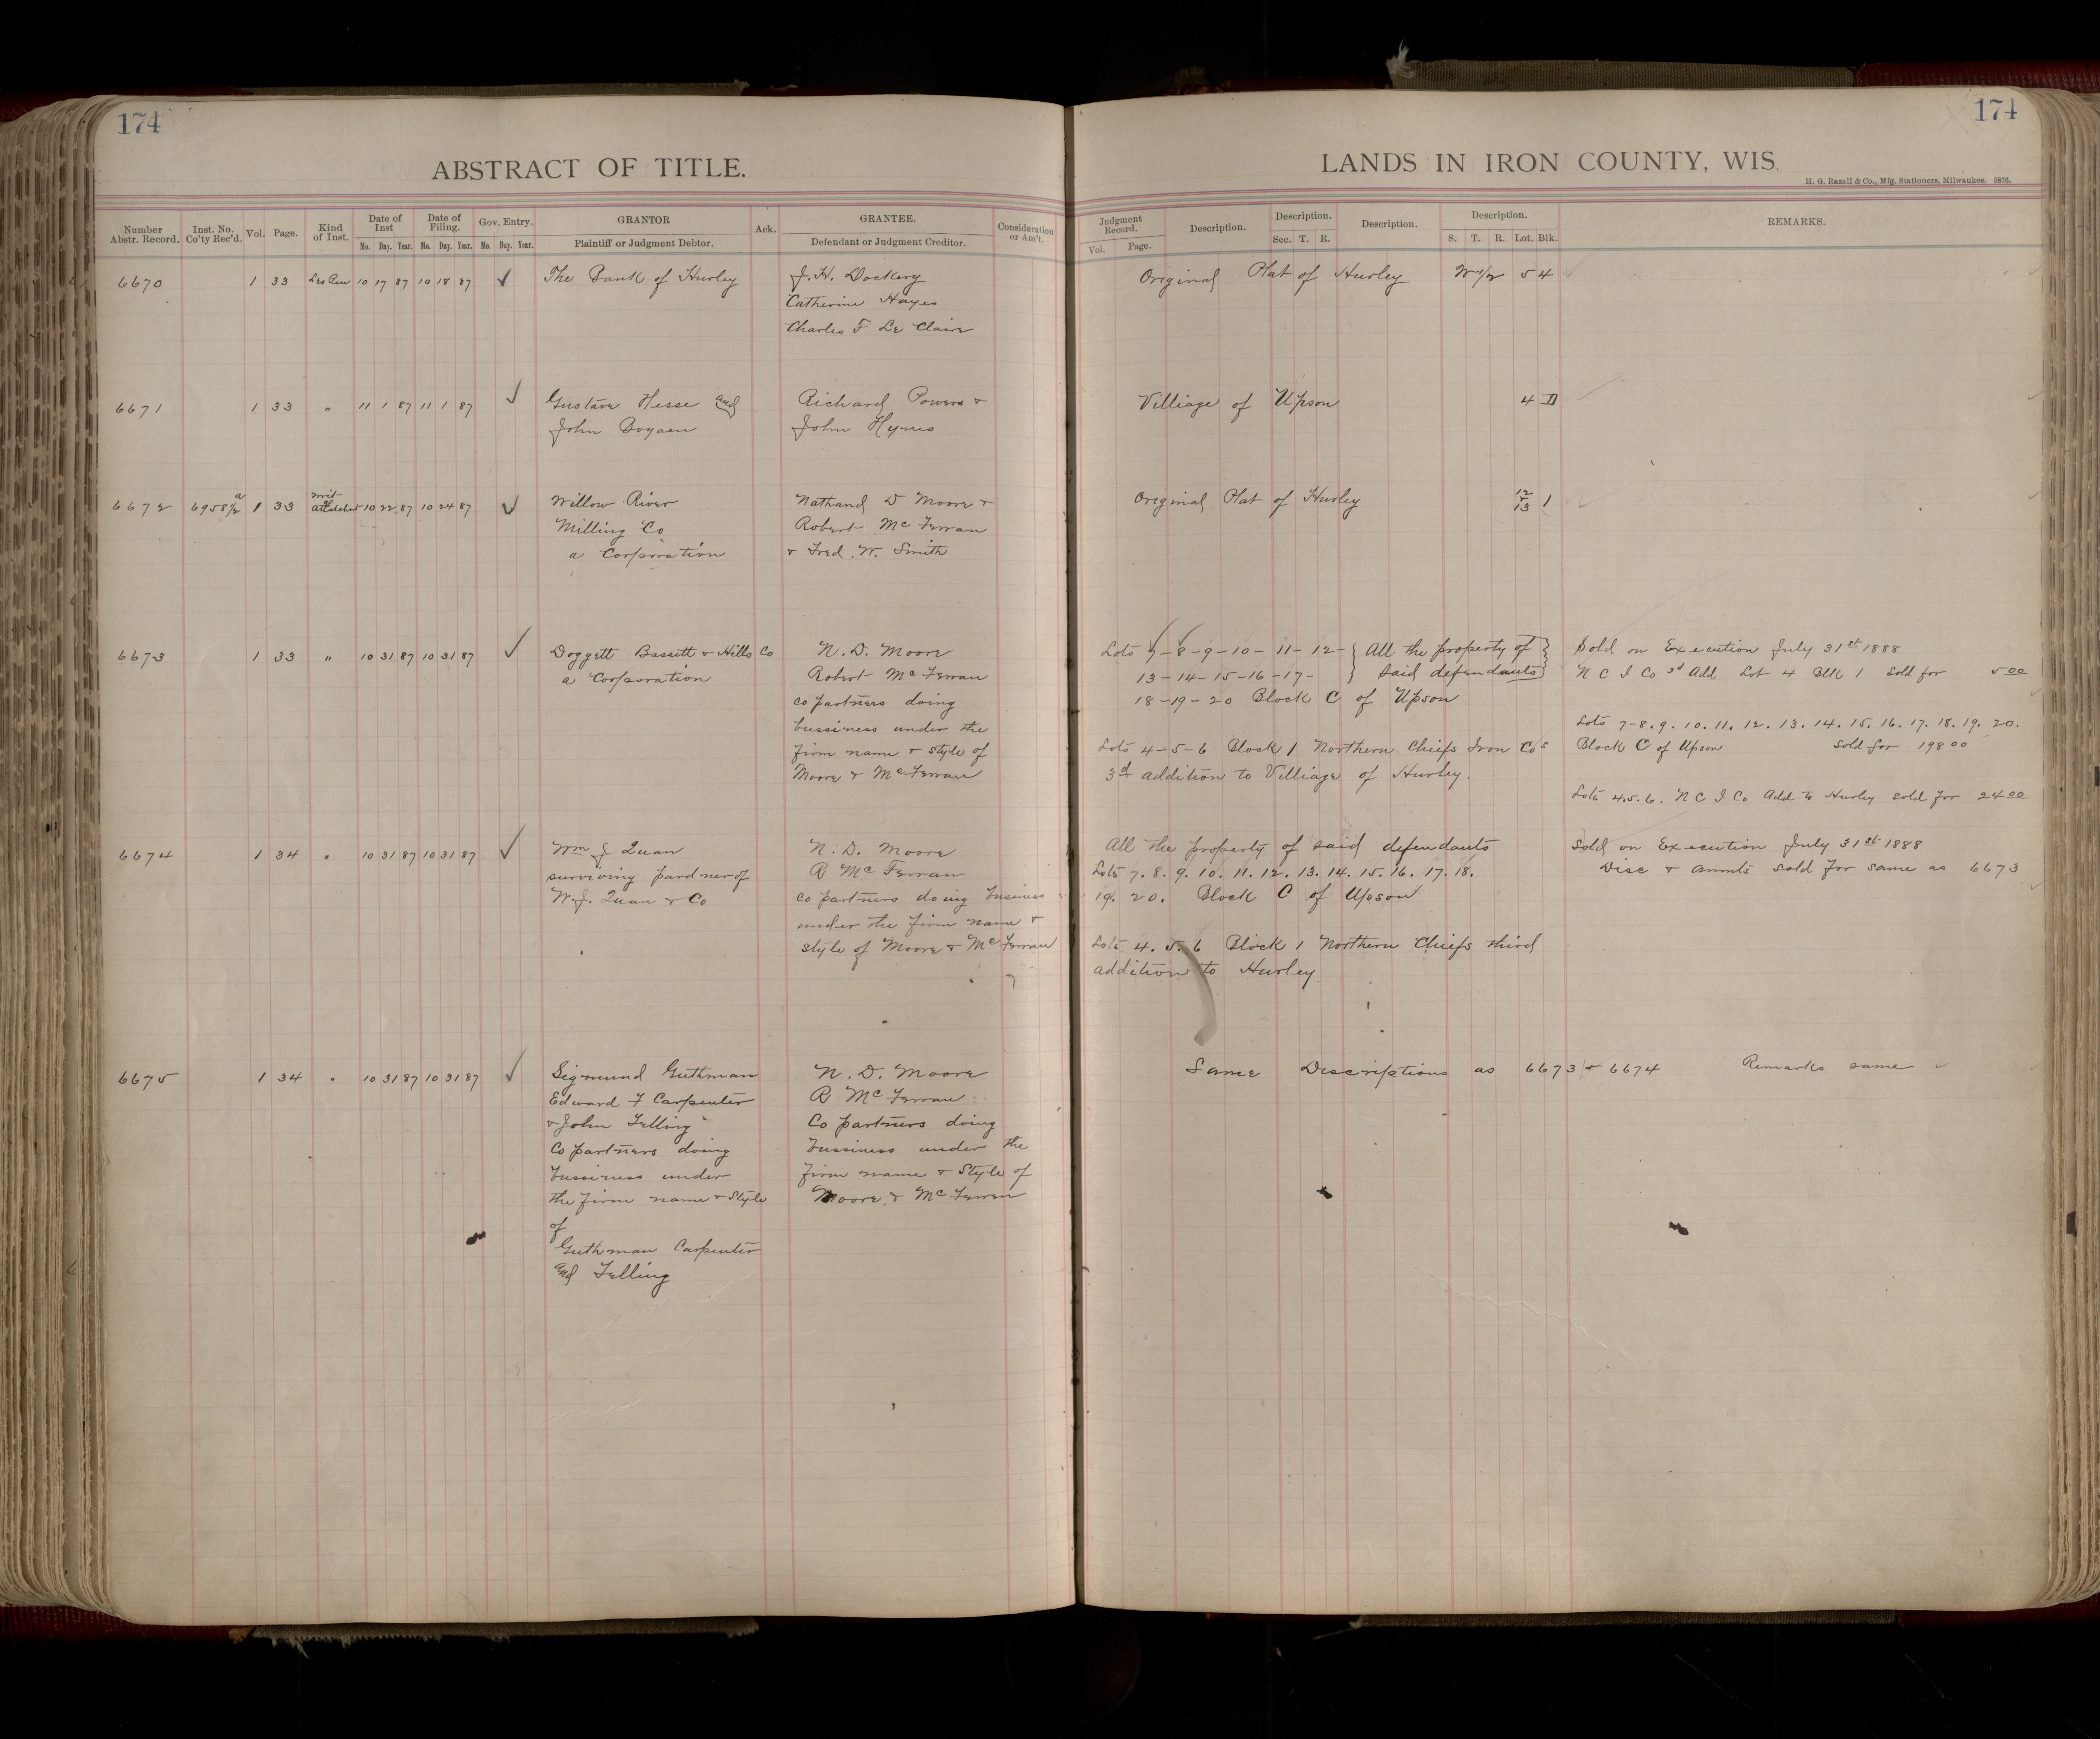 174
174
ABSTRACT OF TITLE.
LANDS IN IRON COUNTY, WIS.
H. G. Razall & Co., Mfg. Stationers, Milwaukee. 5876.
Number Abstr. Record. Inst. No. Co'ty Rec'd. Vol. Page. Kind of Inst. Date of Inst Date of Filing. Gov. Entry. GRANTOR Ack. GRANTEE. Consideration or Am't. Judgment Record. Description. Description. Description. Description. REMARKS.
Mo. Day. Year. Mo. Day. Year. Mo. Day. Year. Plaintiff or Judgment Debtor. Defendant or Judgment Creditor. Vol. Page. Sec. T. R. S. T. R. Lot. Blk.
6670 1 33 Les Pen 10 17 87 10 18 87 ✓ The Bank of Hurley J. H. Dockery Original Plat of Hurley W 1/2 5 4
Catherine Hayes
Charles F Le Claire
6671 1 33 " 11 1 87 11 1 87 ✓ Gustave Hesse and Richard Powers & Villiage of Upson 4 D
John Boysen John Hynes
6672 6958 1/2 a 1 33 writ of Attatchet 10 22 87 10 24 87 ✓ Willow River Nathand D Moore & Original Plat of Hurley 12 & 13 1
Milling Co Robert McFerran
a Corporation & Fred. W. Smith
6673 1 33 " 10 31 87 10 31 87 ✓ Doggett Bassett & Hills Co N. D. Moore Lots 7-8-9-10-11-12- All the property of Sold on Execution July 31st 1888
a Corporation Robert McFerran 13-14-15-16-17- said defendants N C I Co 3d Add Lot 4 Blk 1 Sold for 5 00
co partners doing 18-19-20 Block C of Upson
bussiness under the Lots 7-8. 9. 10. 11. 12. 13. 14. 15. 16. 17. 18. 19. 20.
firm name & style of Lots 4-5-6 Block 1 Northern Chiefs Iron Cos Block C of Upson Sold for 198 00
Moore & McFerran 3d addition to Villiage of Hurley.
Lots 4.5.6. N C I Co Add to Hurley sold for 24 00
6674 1 34 " 10 31 87 10 31 87 ✓ Wm J Quan N. D. Moore All the property of said defendants Sold on Execution July 31st 1888
surviving pardner of R McFerran Lots 7. 8. 9. 10. 11. 12. 13. 14. 15. 16. 17. 18. Disc & amnts sold for same as 6673
W. J. Quan & Co co partners doing business 19. 20. Block C of Upson
under the firm name &
style of Moore & McFerran Lots 4. 5. 6 Block 1 Northern Chiefs third
addition to Hurley
6675 1 34 " 10 31 87 10 31 87 ✓ Sigmund Guthman N. D. Moore Same Descriptions as 6673 & 6674 Remarks same
Edward F Carpenter R McFerran
& John Telling Co partners doing
Co partners doing bussiness under the
bussiness under firm name & Style of
the firm name & Style Moore & McFerren
of
Guthman Carpenter
and Telling